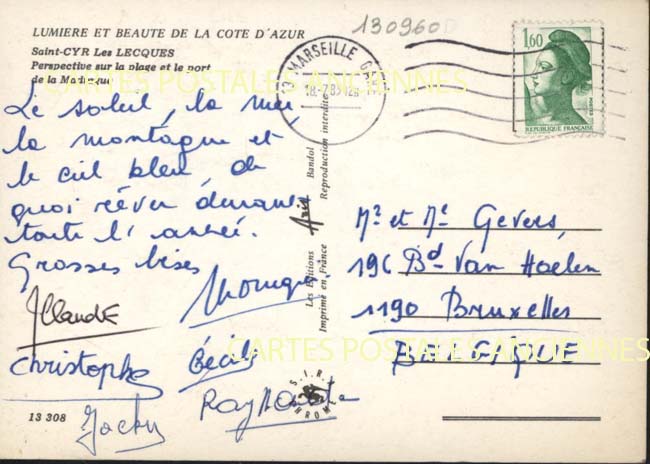 LUMIERE ET BEAUTE DE LA COTE D'AZUR
Saint-CYR Les LECQUES
Perspective sur la plage et le port
de la Madrague
130960
13 MARSEILLE
18-7-85
1,60
REPUBLIQUE FRANÇAISE
CARTES POSTALES ANCIENNES
Le soleil, la mer,
la montagne et
le ciel bleu, de
quoi rêver durant
toute l'année.
Grosses bises
Monique
Christophe
Cécile
Jacky
Raymonde
13 308
Les Editions Aris Bandol
Imprimé en France Reproduction interdite
S.I.R.
CHROME
Mr et Me Gevers,
196 Bd Van Haelen
1190 Bruxelles
BELGIQUE
CARTES POSTALES ANCIENNES